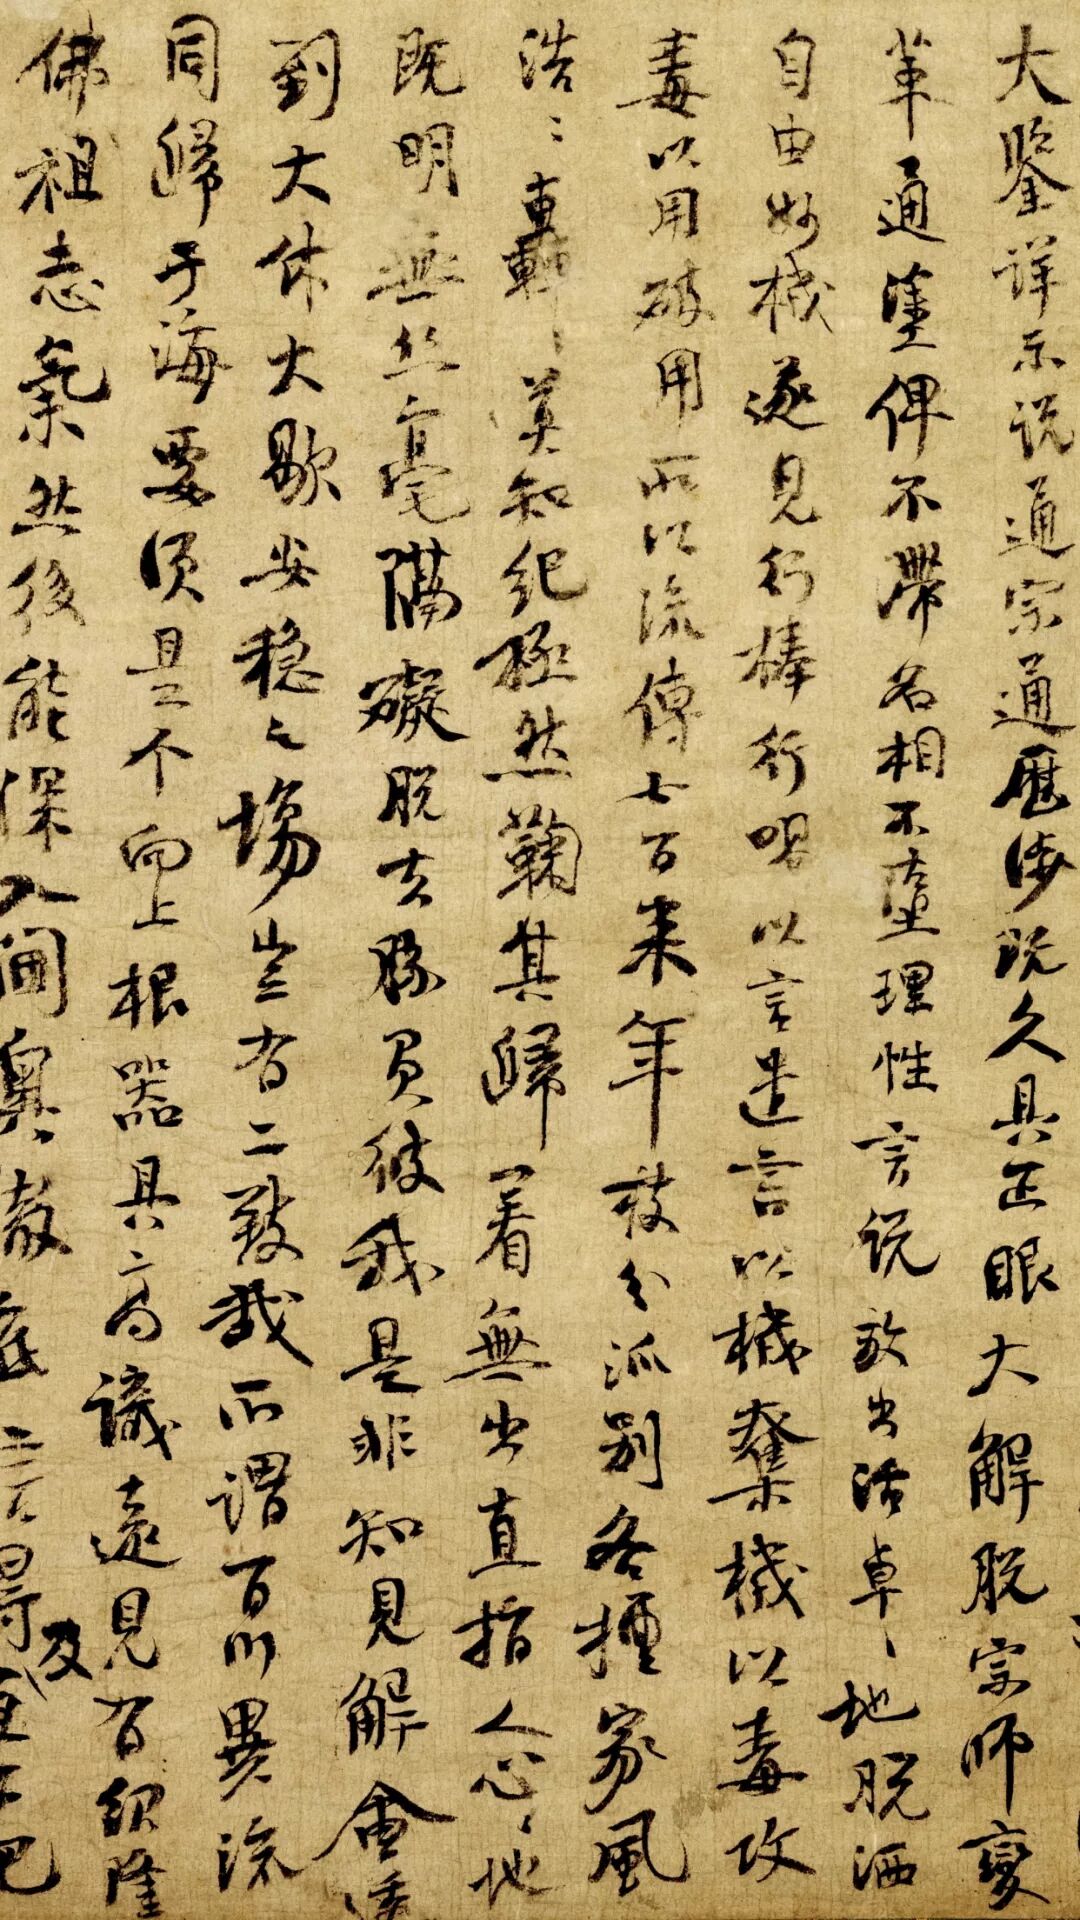 大鑒詳示說通宗通歷涉既久具正眼大解脫宗師變
革通塗俾不滯名相不墮理性言說放出活卓〻地脫洒
自由妙機遂見行棒行喝以言遣言以機奪機以毒攻
毒以用破用所以流傳七百來年枝分派別各擅家風
浩〻轟〻莫知紀極然鞠其歸著無出直指人心〻地
既明無絲毫隔礙脫去勝負彼我是非知見解會透
到大休大歇安穩之場豈有二致哉所謂百川異流
同歸于海要須是个向上根器具高識遠見有紹隆
佛祖志氣然後能深入閫奧徹底信得及直下把